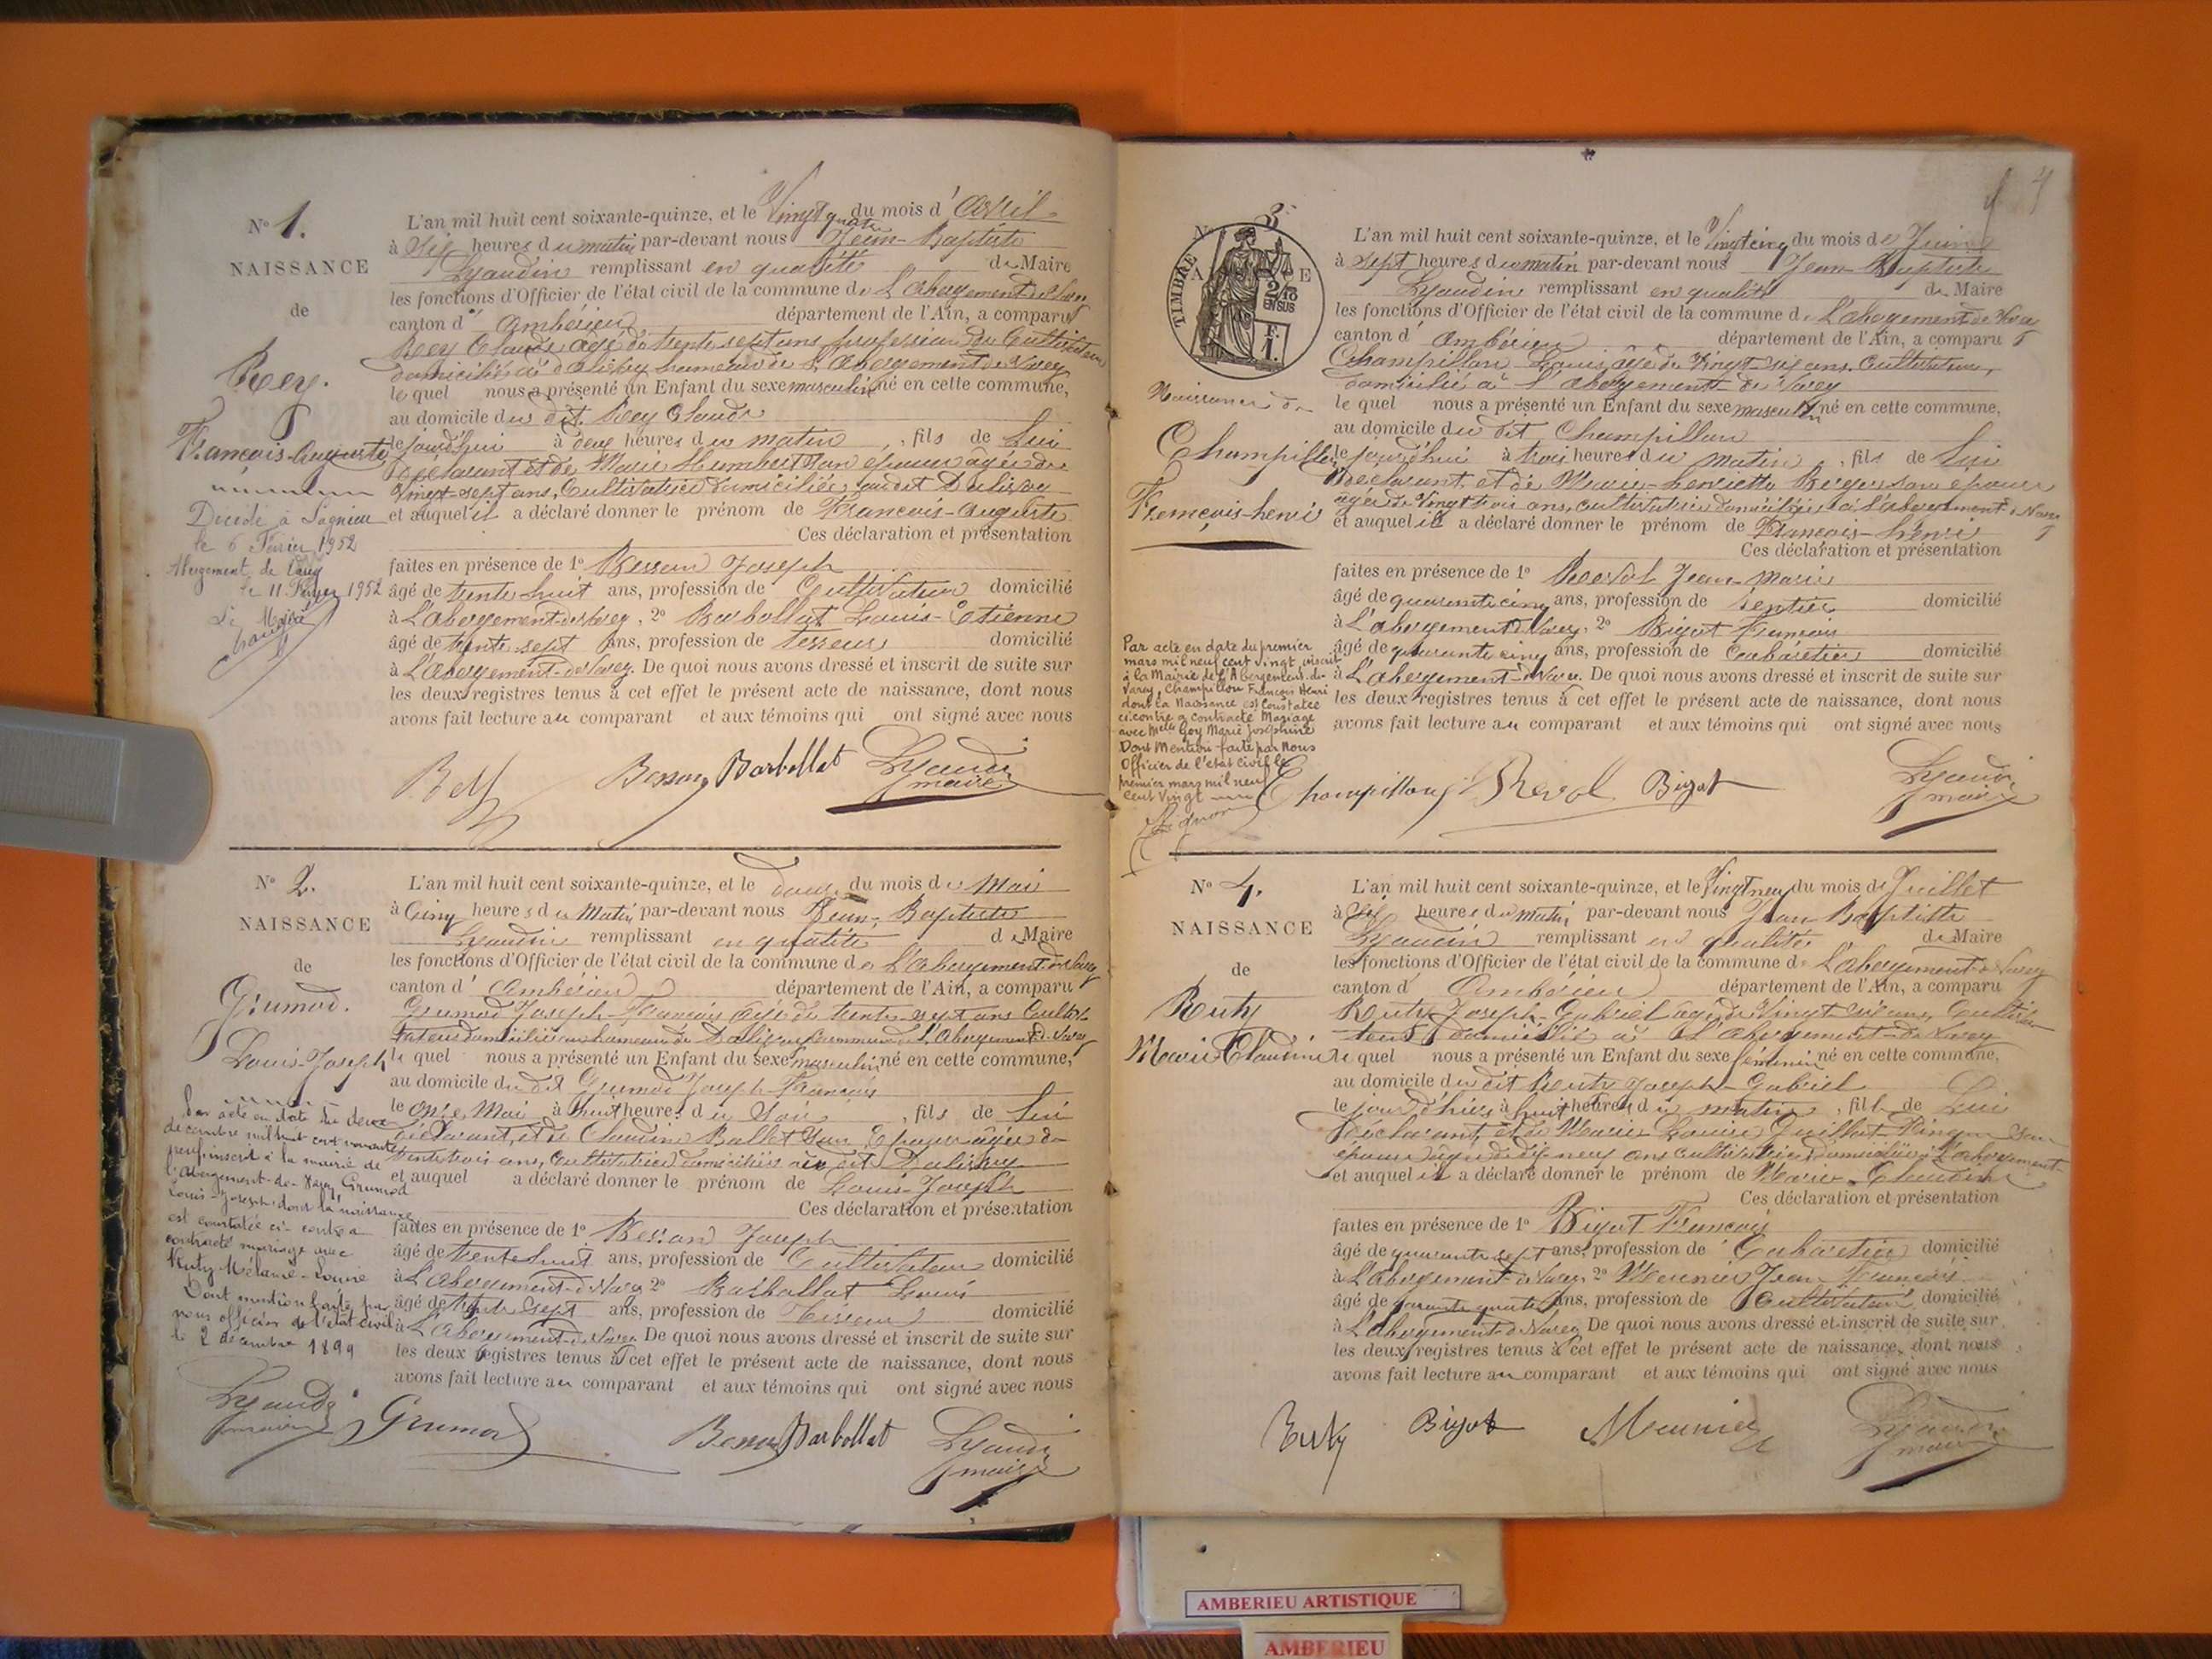 N° 1.
NAISSANCE
de
Rey.
François-Auguste
Décédé à Lagnieu
le 6 Février 1952
Abergement de Varey
le 11 Février 1952
Le Maire
L'an mil huit cent soixante-quinze, et le Vingt quatre du mois d'Avril
à Six heures du matin par-devant nous Jean-Baptiste
Lyaudin remplissant en qualité de Maire
les fonctions d'Officier de l'état civil de la commune de L'Abergement de Varey
canton d'Ambérieu département de l'Ain, a comparu
Rey Claude âgé de trente sept ans profession de Cultivateur
domicilié à hameau de L'Abergement de Varey
le quel nous a présenté un Enfant du sexe masculin né en cette commune,
au domicile du dit Rey Claude
le jourd'hui à deux heures du matin, fils de Lui
Déclarant et de Marie Humbert son épouse âgée de
Vingt-sept ans, Cultivatrice domiciliée audit Dalivoy
et auquel il a déclaré donner le prénom de François-Auguste
Ces déclaration et présentation
faites en présence de 1° Besson Joseph
âgé de trente huit ans, profession de Cultivateur domicilié
à L'Abergement-de Varey, 2° Barbollat Louis-Etienne
âgé de trente sept ans, profession de Tisseur domicilié
à L'Abergement-de Varey. De quoi nous avons dressé et inscrit de suite sur
les deux registres tenus à cet effet le présent acte de naissance, dont nous
avons fait lecture au comparant et aux témoins qui ont signé avec nous
Rey Besson Barbollat Lyaudin
maire
N° 2.
NAISSANCE
de
Grumod.
Louis-Joseph
Par acte en date du deux
décembre mil huit cent nonante
neuf inscrit à la mairie de
l'Abergement-de-Varey, Grumod
Louis-Joseph, dont la naissance
est constatée ci-contre a
contracté mariage avec
Ruty Mélanie-Louise
Dont mention faite par
nous officier de l'état civil
le 2 décembre 1899
Lyaudin
maire
L'an mil huit cent soixante-quinze, et le douze du mois de Mai
à Cinq heures du Matin par-devant nous Jean-Baptiste
Lyaudin remplissant en qualité de Maire
les fonctions d'Officier de l'état civil de la commune de L'Abergement de Varey
canton d'Ambérieu département de l'Ain, a comparu
Grumod Joseph-François âgé de trente-sept ans Cultiva-
teur domicilié au hameau de Dalivoy commune de L'Abergement de Varey
le quel nous a présenté un Enfant du sexe masculin né en cette commune,
au domicile du dit Grumod Joseph-François
le onze Mai à huit heures du Soir, fils de Lui
déclarant, et de Claudine Ballet son Epouse âgée de
trente trois ans, Cultivatrice domiciliée au dit Dalivoy
et auquel a déclaré donner le prénom de Louis-Joseph
Ces déclaration et présentation
faites en présence de 1° Besson Joseph
âgé de trente huit ans, profession de Cultivateur domicilié
à L'Abergement-de Varey 2° Barbollat Louis
âgé de trente sept ans, profession de Tisseur domicilié
à L'Abergement de Varey De quoi nous avons dressé et inscrit de suite sur
les deux registres tenus à cet effet le présent acte de naissance, dont nous
avons fait lecture au comparant et aux témoins qui ont signé avec nous
Grumod Besson Barbollat Lyaudin
maire
4
N° 3
TIMBRE
A E
2/10
EN SUS
F.
1.
Naissance de
Champillon
François-henri
Par acte en date du premier
mars mil neuf cent vingt inscrit
à la Mairie de l'Abergement-de-
Varey, Champillon François Henri
dont la Naissance est Constatée
ci-contre a Contracté Mariage
avec Melle Goy Marie Joséphine
Dont Mention faite par Nous
Officier de l'état civil le
premier mars mil neuf
cent vingt
L'an mil huit cent soixante-quinze, et le Vingt cinq du mois de Juin
à Sept heures du matin par-devant nous Jean-Baptiste
Lyaudin remplissant en qualité de Maire
les fonctions d'Officier de l'état civil de la commune de L'abergement de Varey
canton d'Ambérieu département de l'Ain, a comparu
Champillon Louis âgé de Vingt-six ans, Cultivateur,
domicilié à L'abergement de Varey
le quel nous a présenté un Enfant du sexe masculin né en cette commune,
au domicile du dit Champillon
le jourd'hui à trois heures du matin, fils de Lui
Déclarant, et de Marie-henriette Roger son épouse
âgée de Vingt trois ans, cultivatrice domiciliée à L'abergement de Varey
et auquel il a déclaré donner le prénom de François-henri
Ces déclaration et présentation
faites en présence de 1° Revol Jean-Marie
âgé de quarante cinq ans, profession de rentier domicilié
à L'abergement de Varey, 2° Bigot François
âgé de quarante cinq ans, profession de Cabaretier domicilié
à L'abergement-de Varey. De quoi nous avons dressé et inscrit de suite sur
les deux registres tenus à cet effet le présent acte de naissance, dont nous
avons fait lecture au comparant et aux témoins qui ont signé avec nous
Champillon Revol Bigot Lyaudin
maire
N° 4.
NAISSANCE
de
Ruty
Marie Claudine
L'an mil huit cent soixante-quinze, et le Vingt neuf du mois de Juillet
à Six heures du matin par-devant nous Jean Baptiste
Lyaudin remplissant en qualité de Maire
les fonctions d'Officier de l'état civil de la commune de L'abergement-de Varey
canton d'Ambérieu département de l'Ain, a comparu
Ruty Joseph-Gabriel âgé de Vingt six ans, Cultiva-
teur domicilié à L'abergement-de Varey
le quel nous a présenté un Enfant du sexe féminin né en cette commune,
au domicile du dit Ruty Joseph-Gabriel
le jour d'hier à huit heures du matin, fille de Lui
Déclarant, et de Marie Louise Guillot son
épouse âgée de dix neuf ans cultivatrice domiciliée à L'abergement
et auquel il a déclaré donner le prénom de Marie-Claudine
Ces déclaration et présentation
faites en présence de 1° Bigot François
âgé de quarante sept ans, profession de Cabaretier domicilié
à L'abergement de Varey, 2° Meunier Jean François
âgé de quarante quatre ans, profession de Cultivateur domicilié
à L'abergement de Varey De quoi nous avons dressé et inscrit de suite sur
les deux registres tenus à cet effet le présent acte de naissance, dont nous
avons fait lecture au comparant et aux témoins qui ont signé avec nous
Ruty Bigot Meunier Lyaudin
maire
AMBERIEU ARTISTIQUE
AMBERIEU